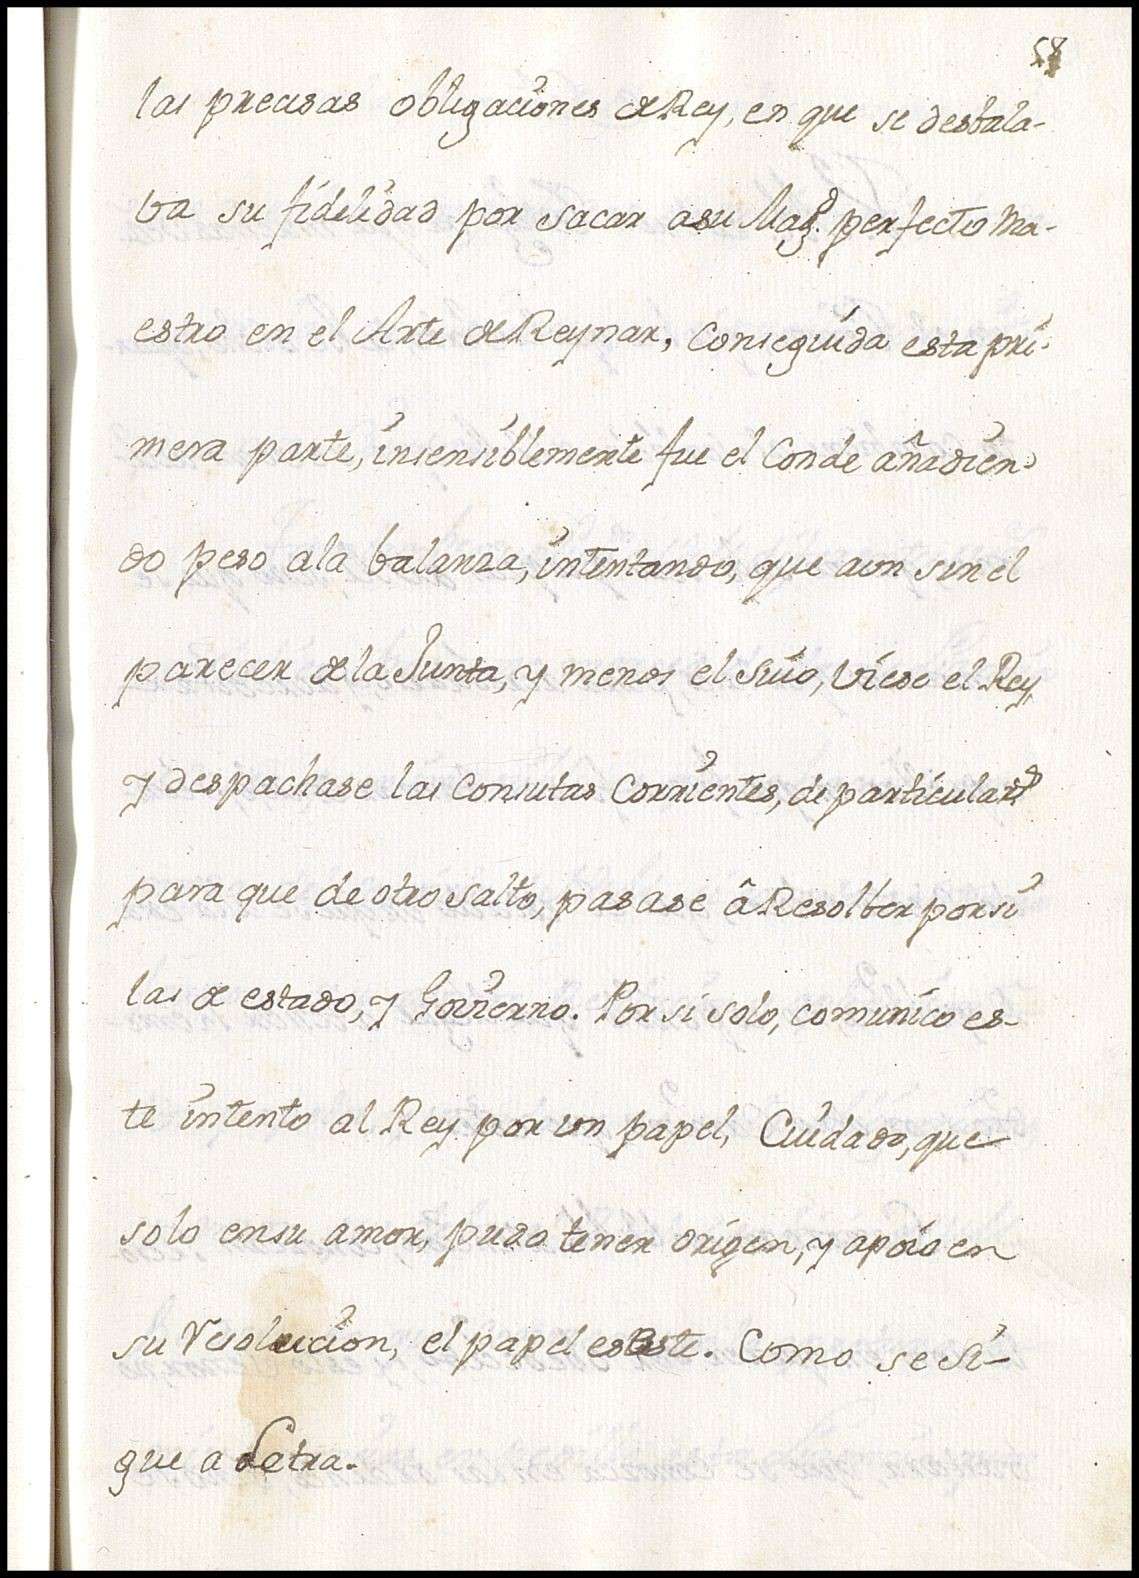 58
las precisas obligaciones de Rey, en que se desbala-
ba su fidelidad por sacar a su Mag.d perfecto Ma-
estro en el Arte de Reynar, Conseguida esta pri-
mera parte, insensiblemente fue el Conde añadien-
do peso ala balanza, intentando, que aun sin el
parecer de la Junta, y menos el suio, viese el Rey,
y despachase las Consultas Corrientes, de particulars
para que de otro salto, pasase â Resolber por si
las de estado, y Govierno. Por si solo, comunico es-
te intento al Rey por un papel, Cuidado, que
solo en su amor, pudo tener origen, y apoio en
su resolucion, el papel es este. Como se si-
gue a Letra.